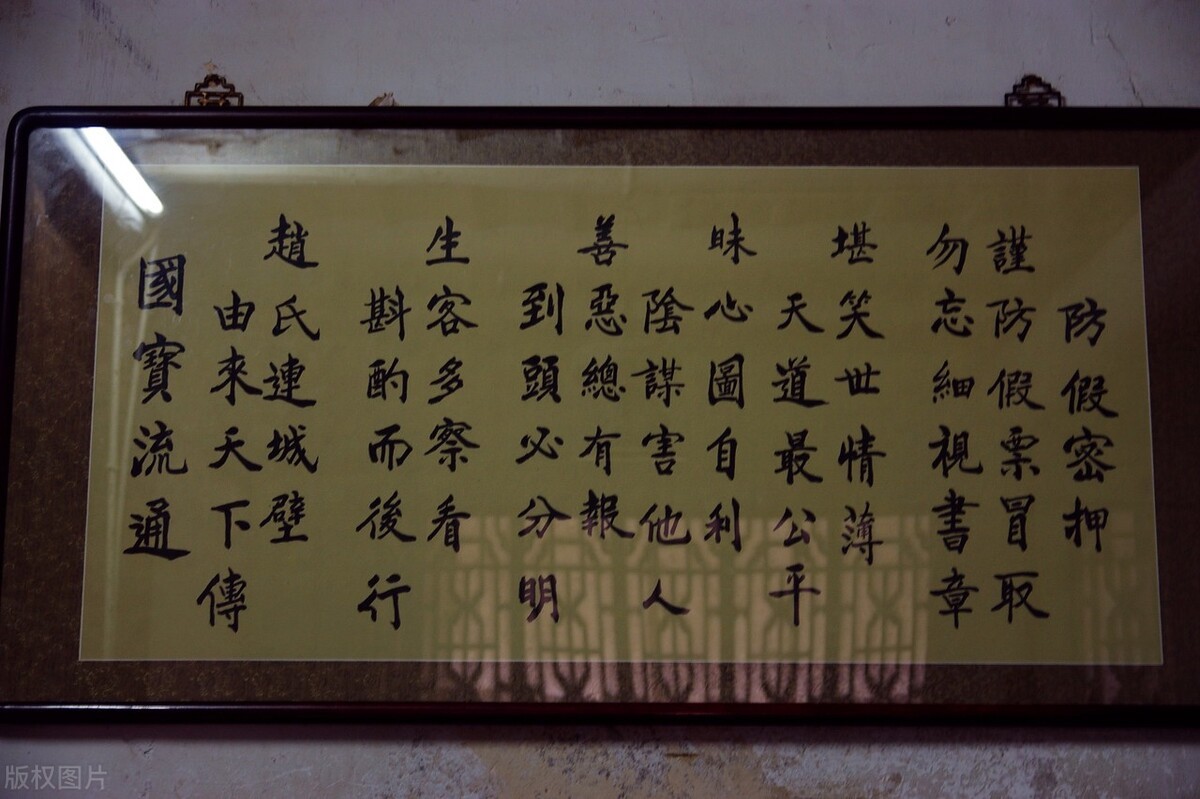 防假密押
謹防假票冒取
勿忘細視書章
堪笑世情薄
天道最公平
昧心圖自利
陰謀害他人
善惡總有報
到頭必分明
生客多察看
斟酌而後行
趙氏連城壁
由來天下傳
國寶流通
版权图片